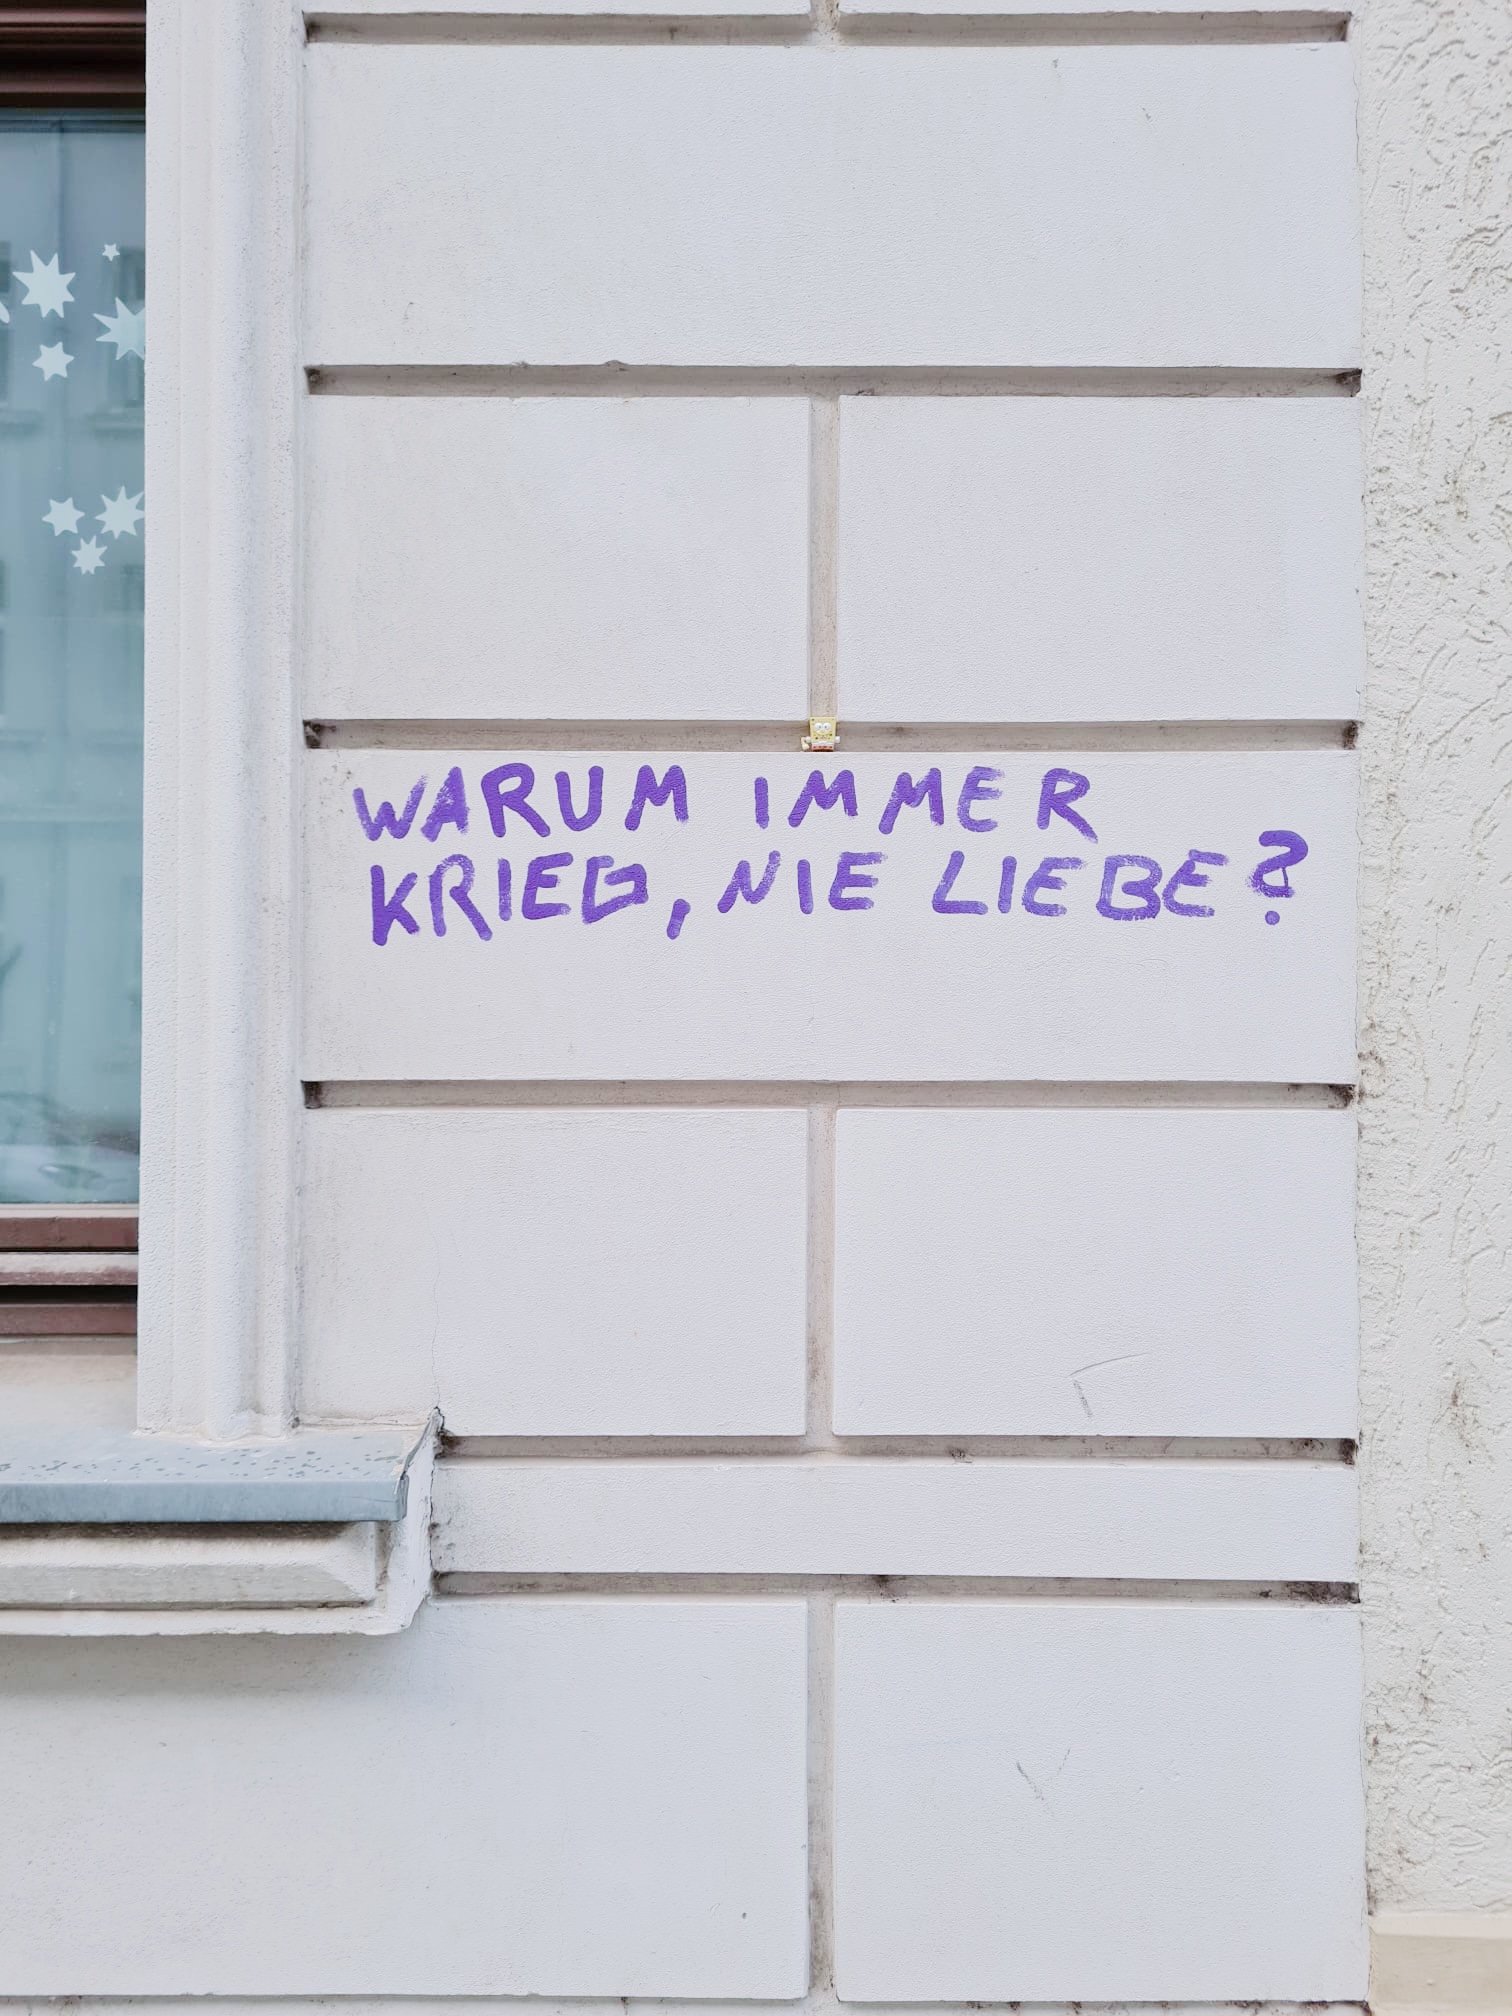 WARUM IMMER
KRIEG, NIE LIEBE?